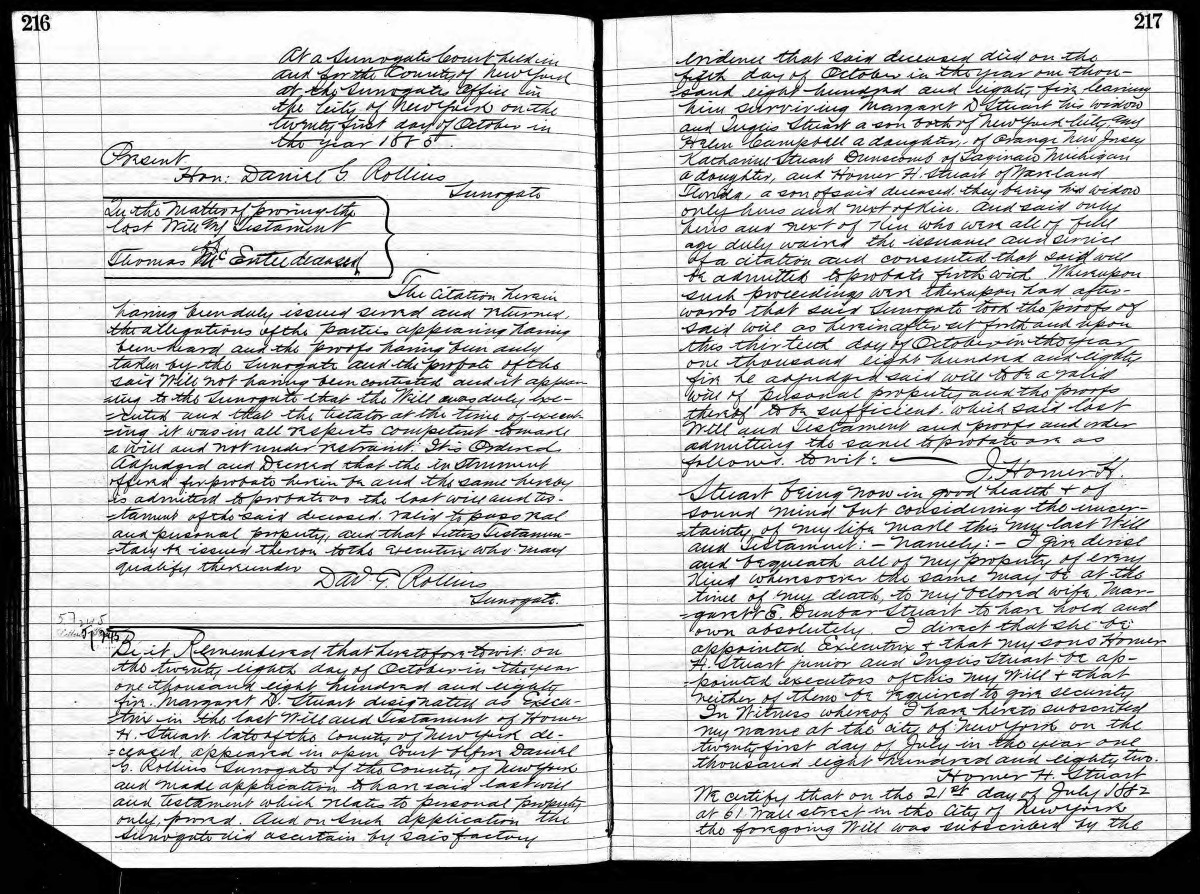 216
At a Surrogate's Court held in
and for the County of New York
at the Surrogate's Office in
the City of New York on the
twenty first day of October in
the year 1885.
Present
Hon: Daniel G. Rollins
Surrogate
In the Matter of proving the
last Will & Testament
of
Thomas McEntee deceased
The Citation herein
having been duly issued served and returned,
the allegations of the parties appearing having
been heard and the proofs having been duly
taken by the Surrogate and the probate of the
said Will not having been contested and it appear-
ing to the Surrogate that the Will was duly exe-
-cuted and that the testator at the time of execut-
=ing it was in all respects competent to make
a Will and not under restraint. It is Ordered
Adjudged and Decreed that the instrument
offered for probate herein be and the same hereby
is admitted to probate as the last will and tes-
-tament of the said deceased. valid to pass real
and personal property, and that Letters Testamen-
-tary be issued thereon to the Executrix who may
qualify thereunder
Danl G. Rollins
Surrogate.
Be it Remembered that heretofore to wit: on
the twenty eighth day of October in the year
one thousand eight hundred and eighty
five. Margaret D. Stuart designated as Execu-
-trix in the last Will and Testament of Homer
H. Stuart late of the County of New York de-
-ceased appeared in open Court before Daniel
G. Rollins Surrogate of the County of New York
and made application to have said last will
and testament which relates to personal property
only, proved. And on such application the
Surrogate did ascertain by satisfactory
217
evidence that said deceased died on the
fifth day of October in the year one thou-
=sand eight hundred and eighty five leaving
him surviving Margaret D Stuart his widow
and Inglis Stuart a son both of New York City
Helen Campbell a daughter, of Orange New Jersey
Katharine Stuart Dunscomb of Saginaw Michigan
a daughter, and Homer H. Stuart of
Florida, a son of said deceased, they being his widow
only heirs and next of kin. And said only
heirs and next of kin who were all of full
age duly waived the issuance and service
of a citation and consented that said will
be admitted to probate forthwith Whereupon
such proceedings were thereupon had after-
wards that said Surrogate took the proofs of
said will as hereinafter set forth and upon
this thirtieth day of October in the year
one thousand eight hundred and eighty
five he adjudged said will to be a valid
will of personal property and the proofs
thereof to be sufficient. which said last
Will and Testament and proofs and order
admitting the same to probate are as
follows. to wit: I, Homer H.
Stuart being now in good health & of
sound mind but considering the uncer-
-tainty of my life make this my last Will
and Testament: - namely: - I give devise
and bequeath all of my property of every
kind wheresoever the same may be at the
time of my death, to my beloved wife, Mar-
=garet E. Dunbar Stuart to have hold and
own absolutely. I direct that she be
appointed Executrix & that my sons Homer
H. Stuart junior and Inglis Stuart be ap-
-pointed executors of this my Will & that
neither of them be required to give security
In Witness whereof I have hereto subscribed
my name at the city of New York on the
twenty first day of July in the year one
thousand eight hundred and eighty two.
Homer H. Stuart
We certify that on the 21st day of July 1882
at 61 Wall Street in the City of New York
the foregoing Will was subscribed by the